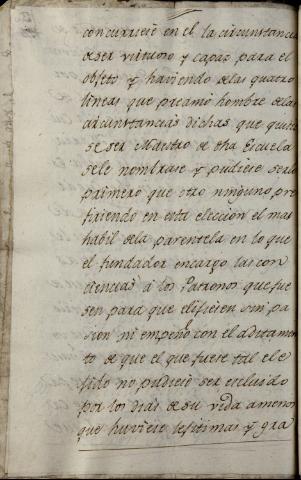 concurriese en el la circunstancia
de ser virtuoso y capaz para el
objeto y haviendo de las quatro
lineas que preamó hombre de las
circunstancias dichas que quisie
se ser Maestro de dha Escuela
se le nombrase y pudiese serlo
primero que otro ninguno pre
firiendo en esta eleccion el mas
habil de la parentela en lo que
el fundador encargo las con
ciencias á los Patronos que fue
sen para que elijiesen sin pa
sion ni empeño con el aditamen
to de que el que fuese tal ele
jido no pudiese ser excluido
por los dias de su vida a menos
que huviese lejitimas y gra